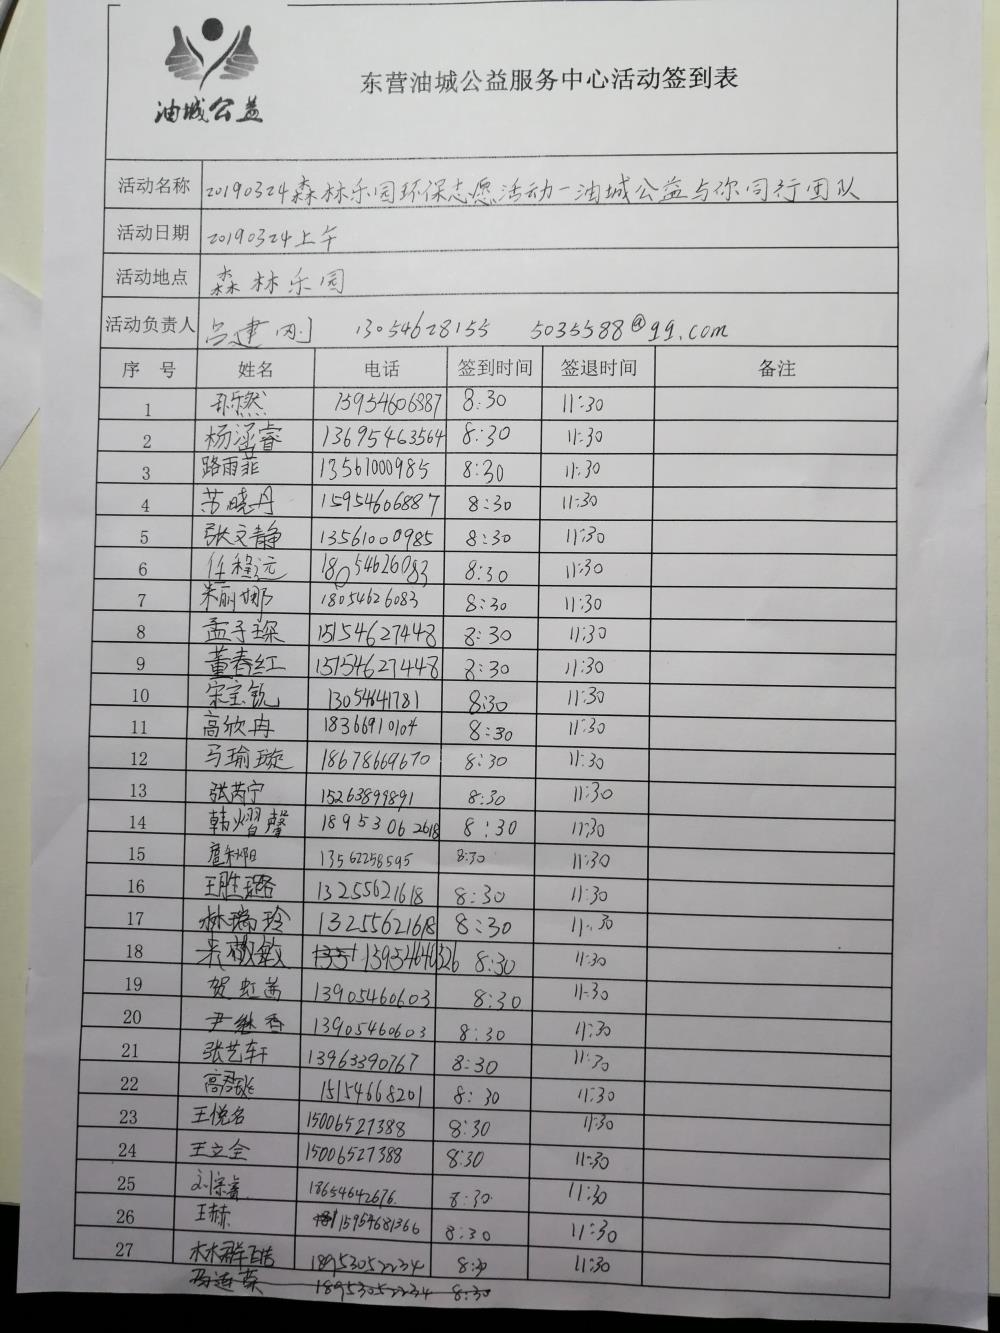 油城公益
东营油城公益服务中心活动签到表
活动名称 20190324森林乐园环保志愿活动-油城公益与你同行团队
活动日期 20190324上午
活动地点 森林乐园
活动负责人 吕建刚 13054628155 5035588@qq.com
序号 姓名 电话 签到时间 签退时间 备注
1 孙乐然 15954606887 8:30 11:30
2 杨涵睿 13695463564 8:30 11:30
3 路雨菲 13561000985 8:30 11:30
4 苏晓丹 15954606887 8:30 11:30
5 张文静 13561000985 8:30 11:30
6 任程远 18054626083 8:30 11:30
7 朱丽娜 18054626083 8:30 11:30
8 孟子琛 15154627448 8:30 11:30
9 董春红 15154627448 8:30 11:30
10 宋宝锐 13054641781 8:30 11:30
11 高欣冉 18366910104 8:30 11:30
12 马瑜璇 18678669670 8:30 11:30
13 张芮宁 15263899891 8:30 11:30
14 韩熠馨 18953062618 8:30 11:30
15 13562258595 8:30 11:30
16 王胜璐 13255621618 8:30 11:30
17 林瑞玲 13255621618 8:30 11:30
18 敏 13954640326 8:30 11:30
19 贺虹茜 13905460603 8:30 11:30
20 尹继香 13905460603 8:30 11:30
21 张艺轩 13963390767 8:30 11:30
22 高 15154668201 8:30 11:30
23 王悦名 15006527388 8:30 11:30
24 王立全 15006527388 8:30 11:30
25 刘宗睿 18654642676 8:30 11:30
26 王赫 15954681366 8:30 11:30
27 林群皓 18953052234 8:30 11:30
冯连荣 18953052234 8:30